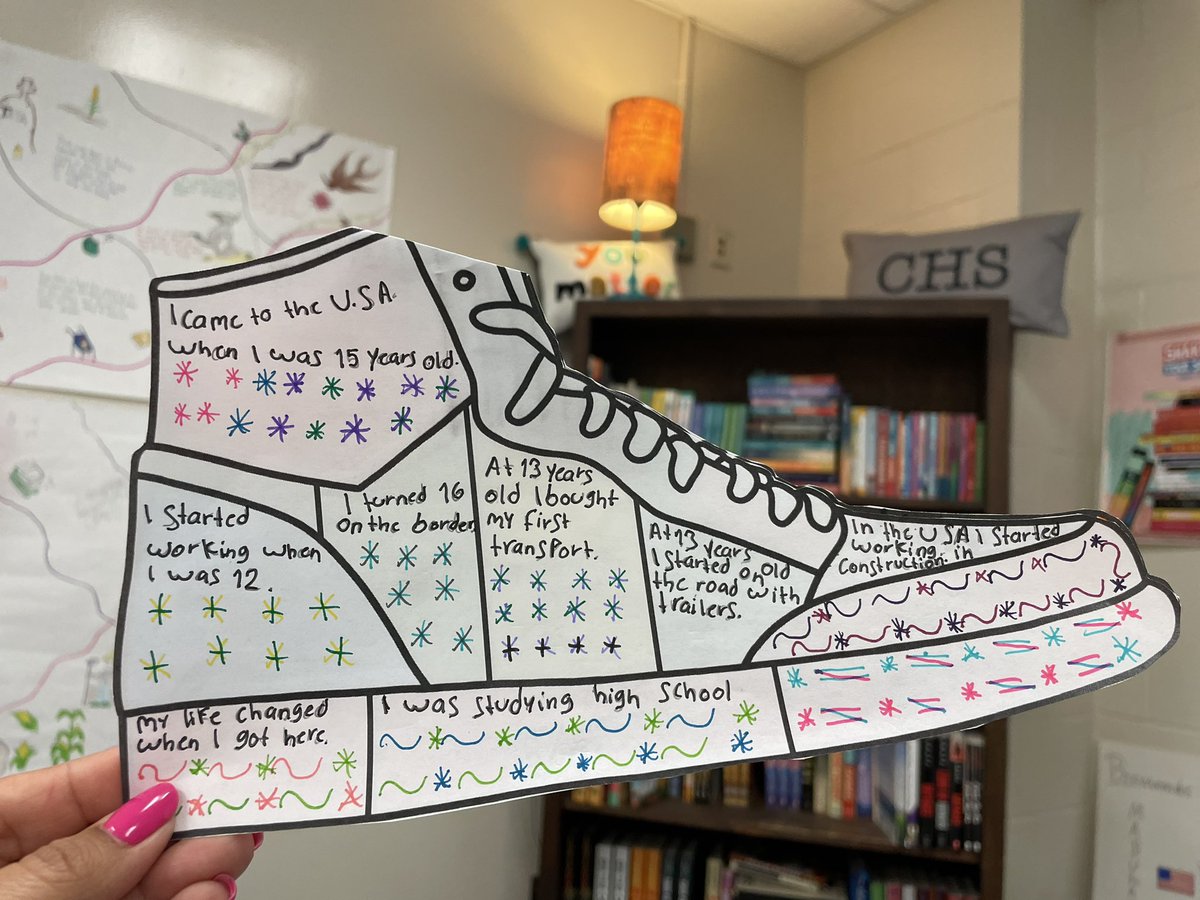 I came to the U.S.A.
when I was 15 years old.
I Started
working when
I was 12.
I turned 16
on the border
At 13 years
old I bought
my first
transport.
At 13 years
old
I Started on
the road with
trailers.
In the USA I started
working in
construction.
my life changed
when I got here.
I was studying high school
you
matter
CHS
Bienvenidos